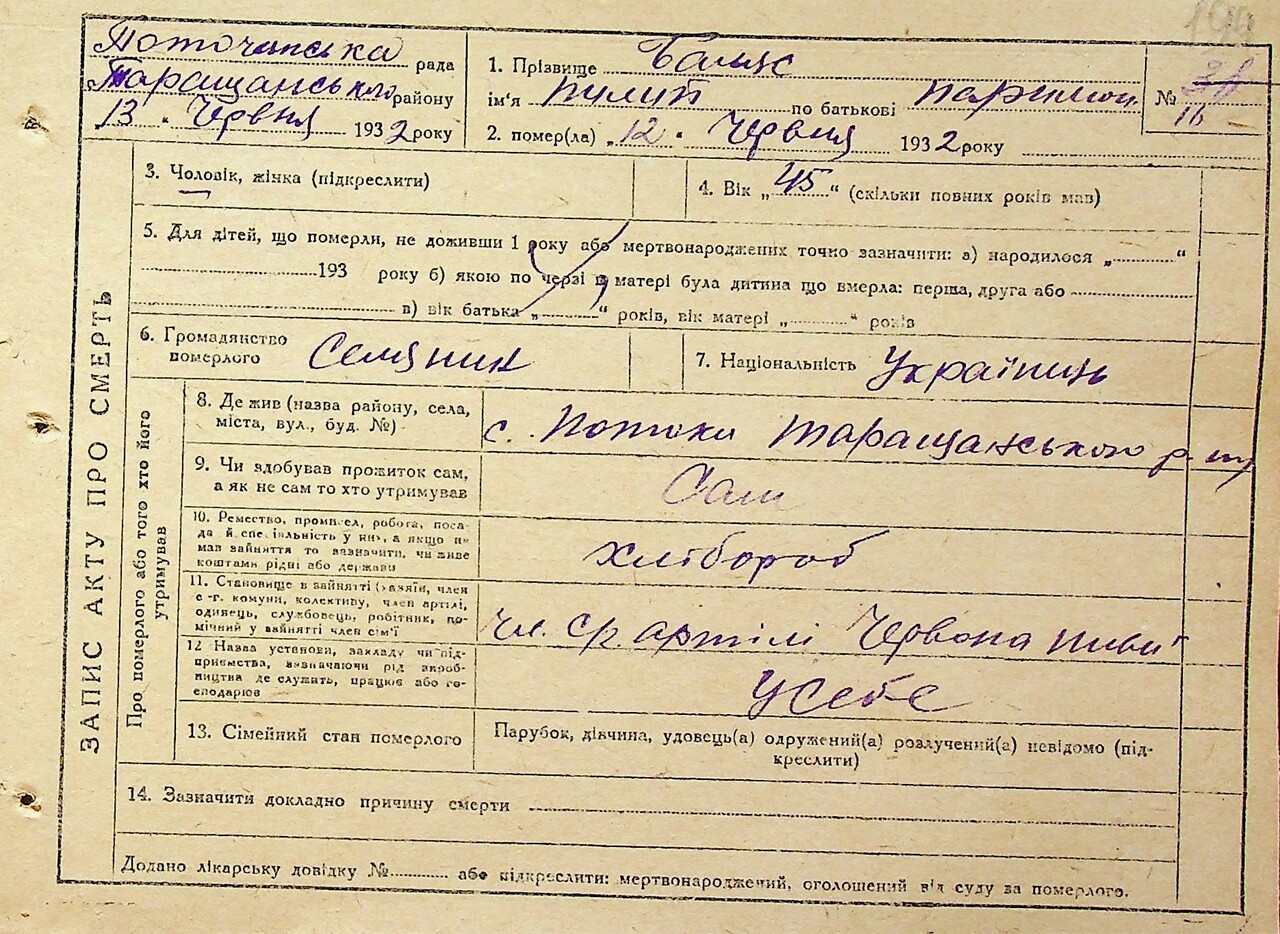 190
Поточанська рада
Таращанського району
13 " Червня 1932 року
1. Прізвище
ім'я по батькові
2. помер(ла) „12 " Червня 1932 року
№ 31
16
ЗАПИС АКТУ ПРО СМЕРТЬ
3. Чоловік, жінка (підкреслити)
4. Вік „ 45 " (скільки повних років мав)
5. Для дітей, що померли, не доживши 1 року або мертвонароджених точно зазначити: а) народилося „ "
193 року б) якою по черзі в матері була дитина що вмерла: перша, друга або
в) вік батька „ " років, вік матері „ " років
6. Громадянство померлого Селянин
7. Національність Українець
Про померлого або того хто його утримував
8. Де жив (назва району, села,
міста, вул., буд. №)
с. Потоки Таращанського р-ну
9. Чи здобував прожиток сам,
а як не сам то хто утримував
Сам
10. Ремество, промисел, робота, поса-
да й спеціяльність у них, а якщо не
мав зайняття то зазначити, чи живе
коштами рідні або держави
Хлібороб
11. Становище в зайнятті (хазяїн, член
с.-г. комуни, колективу, член артілі,
одинець, службовець, робітник, по-
мічний у зайнятті член сім'ї
Чл. Ср. артілі Червона нива"
12 Назва установи, закладу чи під-
приємства, визначаючи рід вироб-
ництва де служить, працює або го-
сподарює
У себе
13. Сімейний стан померлого
Парубок, дівчина, удовець(а) одружений(а) розлучений(а) невідомо (під-
креслити)
14. Зазначити докладно причину смерти
Додано лікарську довідку № або підкреслити: мертвонароджений, оголошений від суду за померлого.